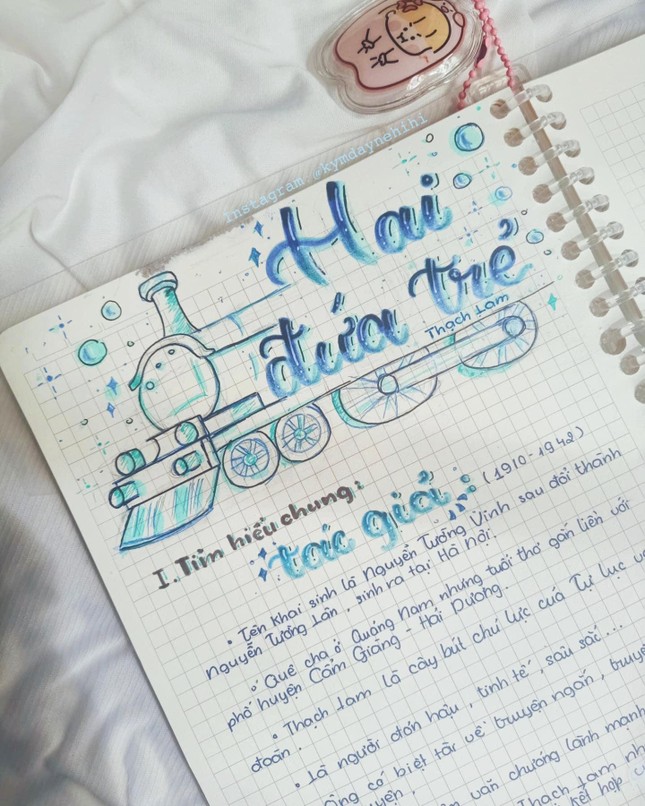 Instagram @kymdaynehihi
Hai
đứa trẻ
Thạch Lam
I. Tìm hiểu chung:
tác giả: (1910-1942)
• Tên khai sinh là Nguyễn Tường Vinh sau đổi thành
Nguyễn Tường Lân, sinh ra tại Hà Nội.
• Quê cha ở Quảng Nam nhưng tuổi thơ gắn liền với
phố huyện Cẩm Giàng - Hải Dương.
• Thạch Lam là cây bút chủ lực của Tự lực
đoàn.
• Là người đôn hậu, tinh tế, sâu sắc...
Ông có biệt tài về truyện ngắn,
văn chương lành mạnh
Thạch Lam
kết hợp